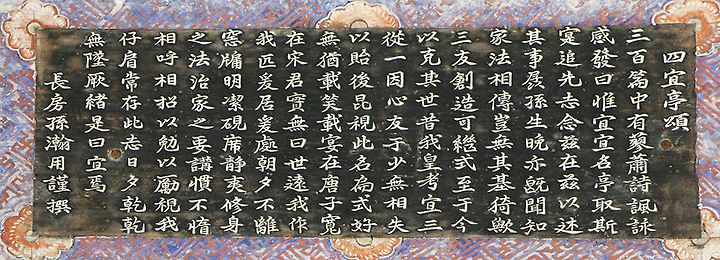 四宜亭頌
三百篇中有蓼蕭詩諷詠
感發曰惟宜宜名亭取斯
宴追先志念茲在茲以述
其事孱孫生晩亦旣聞知
家法相傳豈無其基猗歟
三友創造可繼式至于今
以克其世昔我皇考宜三
從一因心友于少無相失
以貽後昆視此名扁式好
無猶載笑載宴在唐子寬
在宋君實無曰世遠我作
我匹爰居爰處朝夕不離
窓牖明潔硯席静爽修身
之法治家之要講慣不惰
相呼相招以勉以勵視我
仔肩常存此志日夕乾乾
無墜厥緖是曰宜焉
長房孫瀚用謹撰